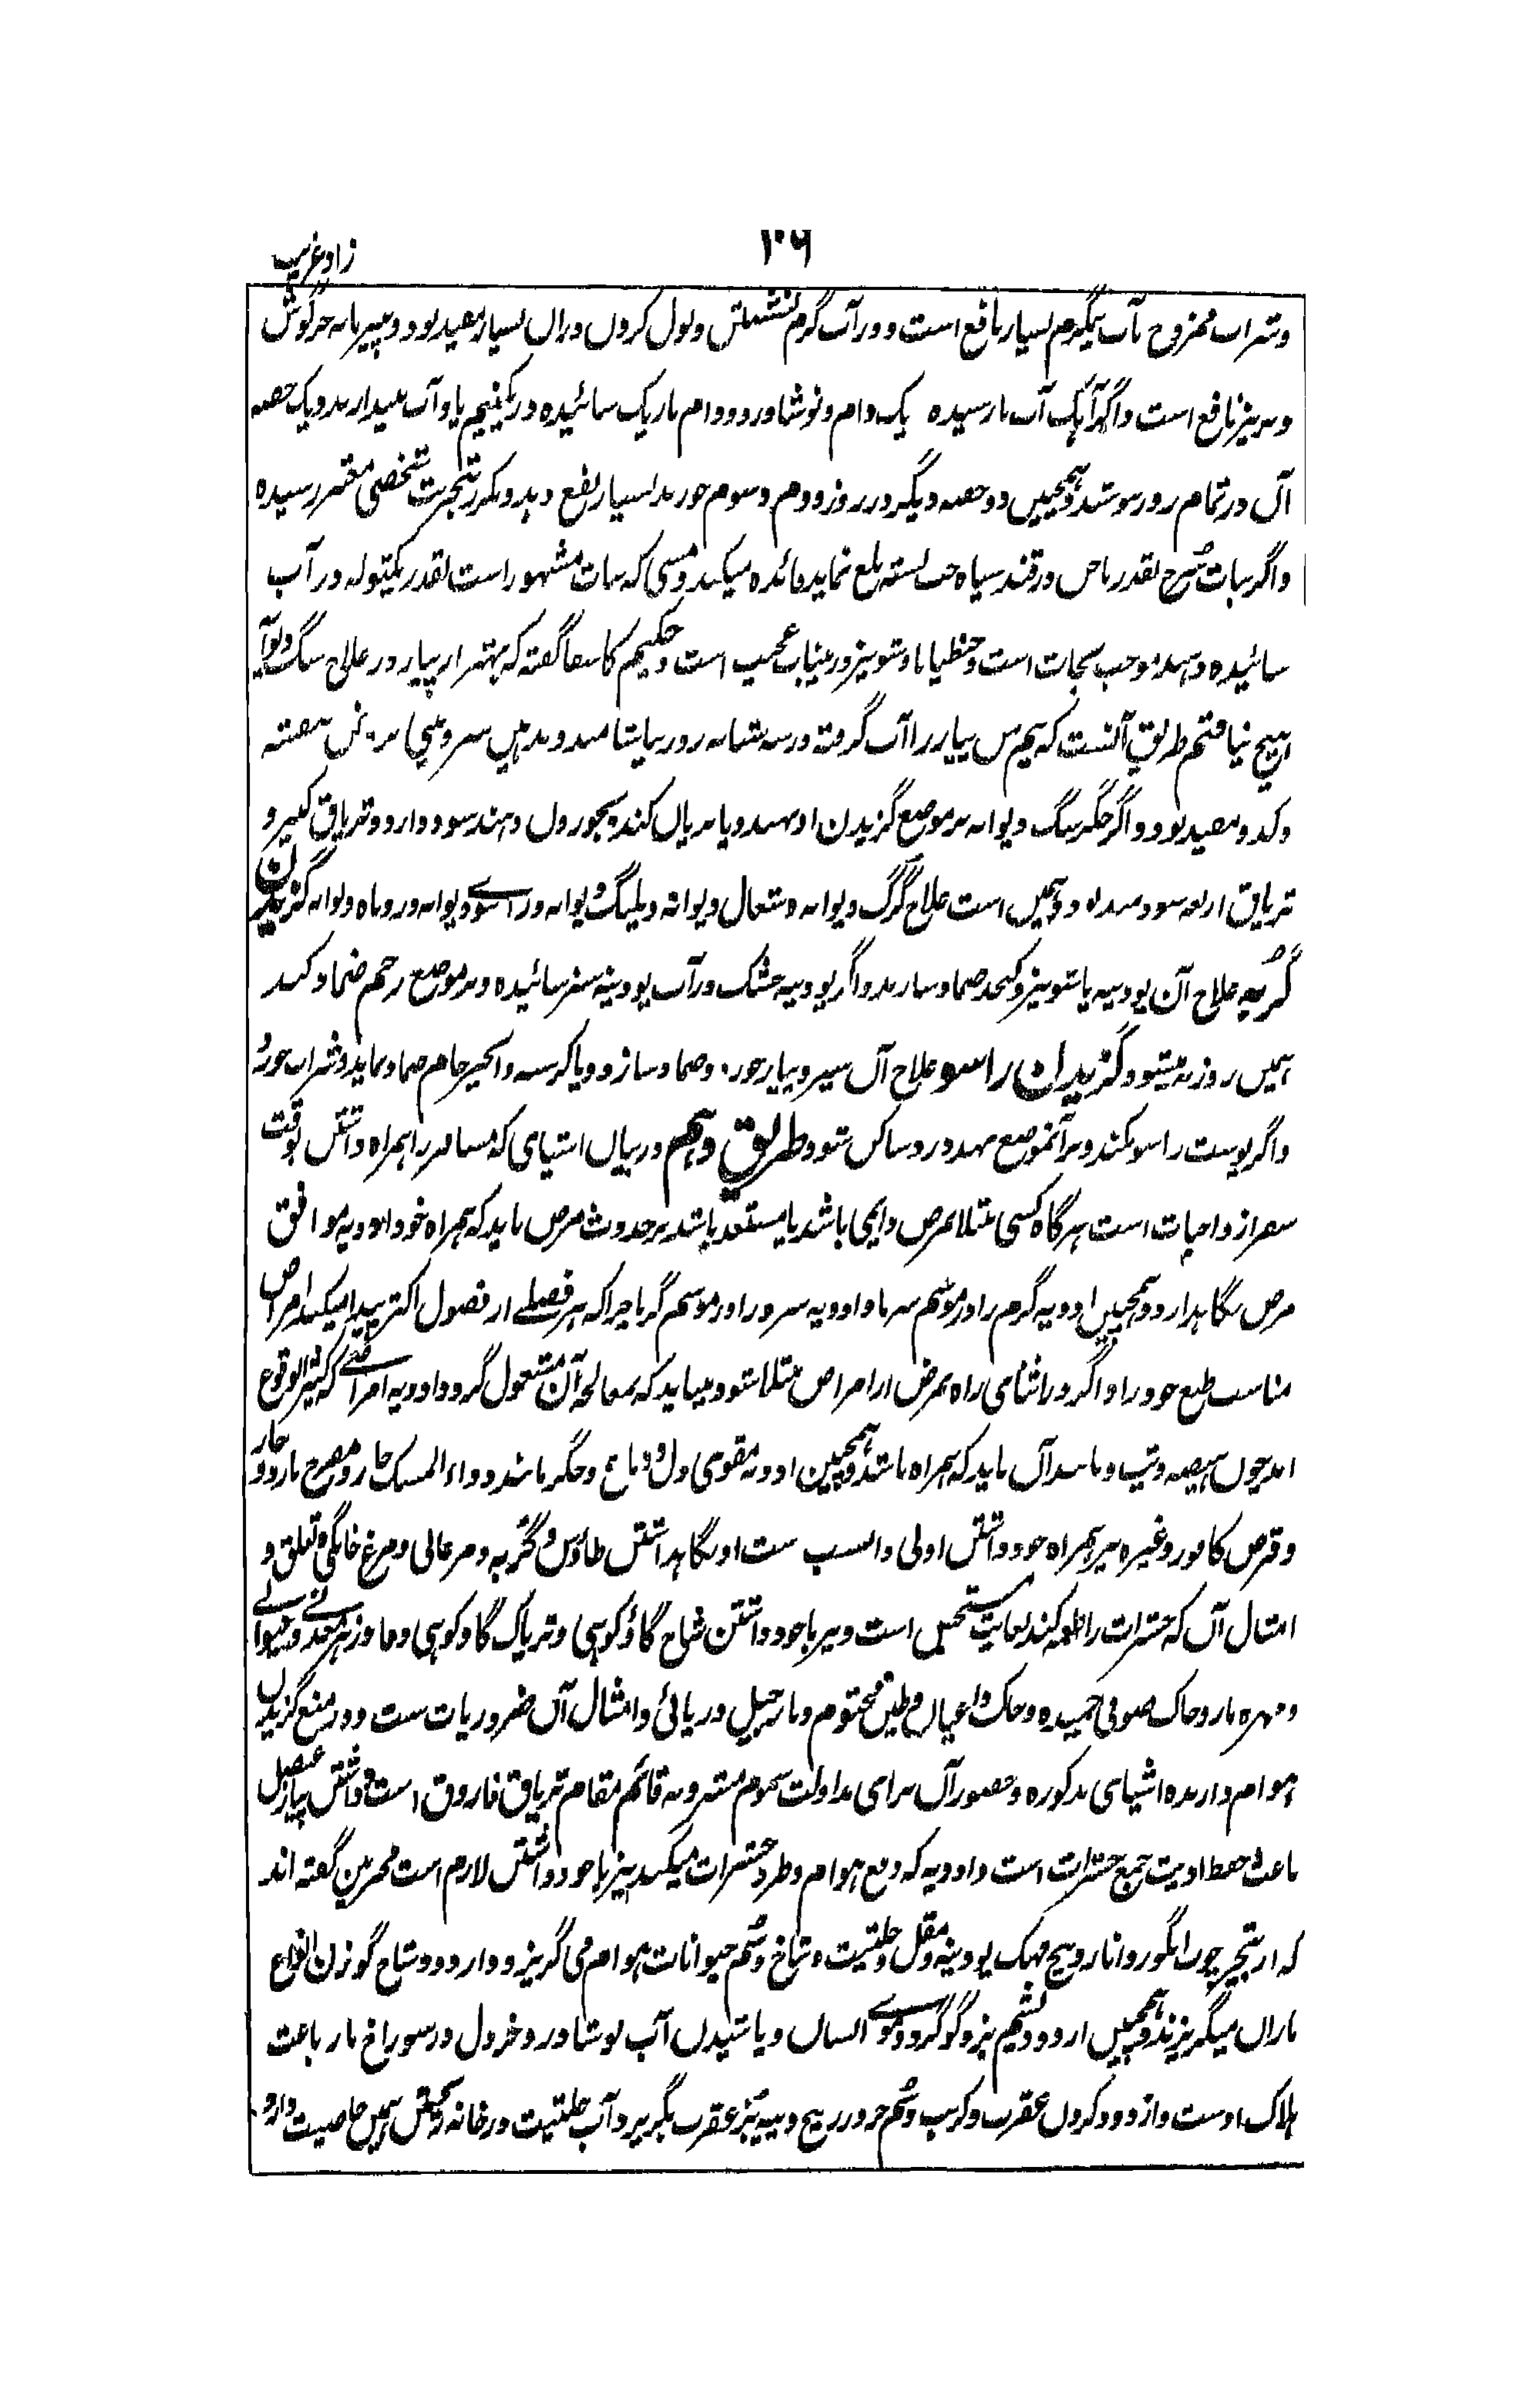 ۲۶
زاد غریب
وشراب ممزوج بآب نیگرم بسیار نافع است و در آب گرم نشستن و بول کردن دران بسیار مفید بود و پنیر مایه خرگوش
و بره نیز نافع است و اگر آهک آب نارسیده یک دام و نوشادر دو دام باریک سائیده در یکنیم پاو آب بیندازند و یک حصه
آن در تمام روز بنوشند و همچنین دو حصه دیگر در روز دوم و سوم خورند بسیار نفع دهد و مکرر بتجربت شخصی مقرر رسیده
و اگر نبات سرخ بقدر ماش در قند سیاه حب بسته بلع نماید فائده میکند و مسی که نبات مشهور است بقدر یکتوله در آب
سائیده دهند موجب نجات است و جنطیانا و شونیز درینباب عجیب است و حکیم گفته که بهتر از پیاز در علاج سگ دیوانه
هیچ نیافتم طریق آنست که نیم من پیاز را آب گرفته در سه شبانه روز بیاشامند و بدهن سر و بینی
و کدو مفید بود و اگر جگر سگ دیوانه بر موضع گزیدن او نهند و یا بریان کنند و بخوردن دهند سود دارد و تریاق کبیر و
تریاق اربعه سودمند و همین است علاج گرگ دیوانه و شغال دیوانه و پلنگ دیوانه و راسوی دیوانه و روباه دیوانه گزیدن
گربه علاج آن پودینه یا شونیز و کنجد ضماد سازند و اگر پودینه خشک در آب پودینه سبز سائیده و بر موضع زخم ضماد کنند
همین روز به میشود گزیدن راسو علاج آن سیر و پیاز خورد و ضماد سازد و یا کرسنه و انجیر خام ضماد نماید و شراب خورد
و اگر پوست راسو بکند و بر آنموضع نهد درد ساکن شود طریق دهم در بیان اشیای که مسافر را همراه داشتن بوقت
سفر از واجبات است هرگاه کسی مبتلا بمرض دایمی باشد یا مستعد باشد بر حدوث مرض باید که همراه خود ادویه موافق
مرض نگاهدارد و همچنین ادویه گرم را در موسم سرما و ادویه سرد را در موسم گرما چراکه هر فصلی از فصول اکثر پیدا میکند امراض
مناسب طبع خود را و اگر در اثنای راه بمرضی از امراض مبتلا شود میباید که بمعالجه آن مشغول گردد و ادویه امراضی کثیر الوقوع
اند چون هیضه و تپ و مانند آن باید که همراه باشد و همچنین ادویه مقوی دل و دماغ و جگر مانند دواء المسک حار و مفرح بارد و حار
و قرص کافور و غیره نیز همراه خود داشتن اولی و انسب ست و نگاهداشتن طاؤس و گربه و مرغابی و مرغ خانگی و لقلق و
امثال آن که حشرات را طعمه کند بغایت مستحسن است و نیز با خود داشتن شاخ گاؤ کوهی و تریاک گاو کوهی و فادزهر معدنی و حیوانی
و مهره مار و خاک صوفی حمیده و خاک داغستان و طین مختوم و نارجیل دریائی و امثال آن ضروریات ست و در منع گزیدن
هوام دارنده اشیای مذکوره و حضور آن برای مداوات سموم مشروبه قائم مقام تریاق فاروق است و داشتن پیاز عنصل
باعث حفظ اذیت جمیع حشرات است و ادویه که دفع هوام و طرد حشرات میکند نیز با خود داشتن لازم است مجربین گفته اند
که از تبخیر چوب انگور و انار و بیخ مهک پودینه و مقل و حلتیت و شاخ و سم حیوانات هوام می گریزد و از دود شاخ گوزن انواع
ماران میگریزند و همچنین از دود پشم بز و گوگرد و موی انسان و پاشیدن آب نوشادر و خردل در سوراخ مار باعث
هلاک اوست و از دود کردن عقرب و کرنب و سم خر و زرنیخ و پیه بز عقرب بگریزد و آب حلتیت در خانه همین خاصیت دارد